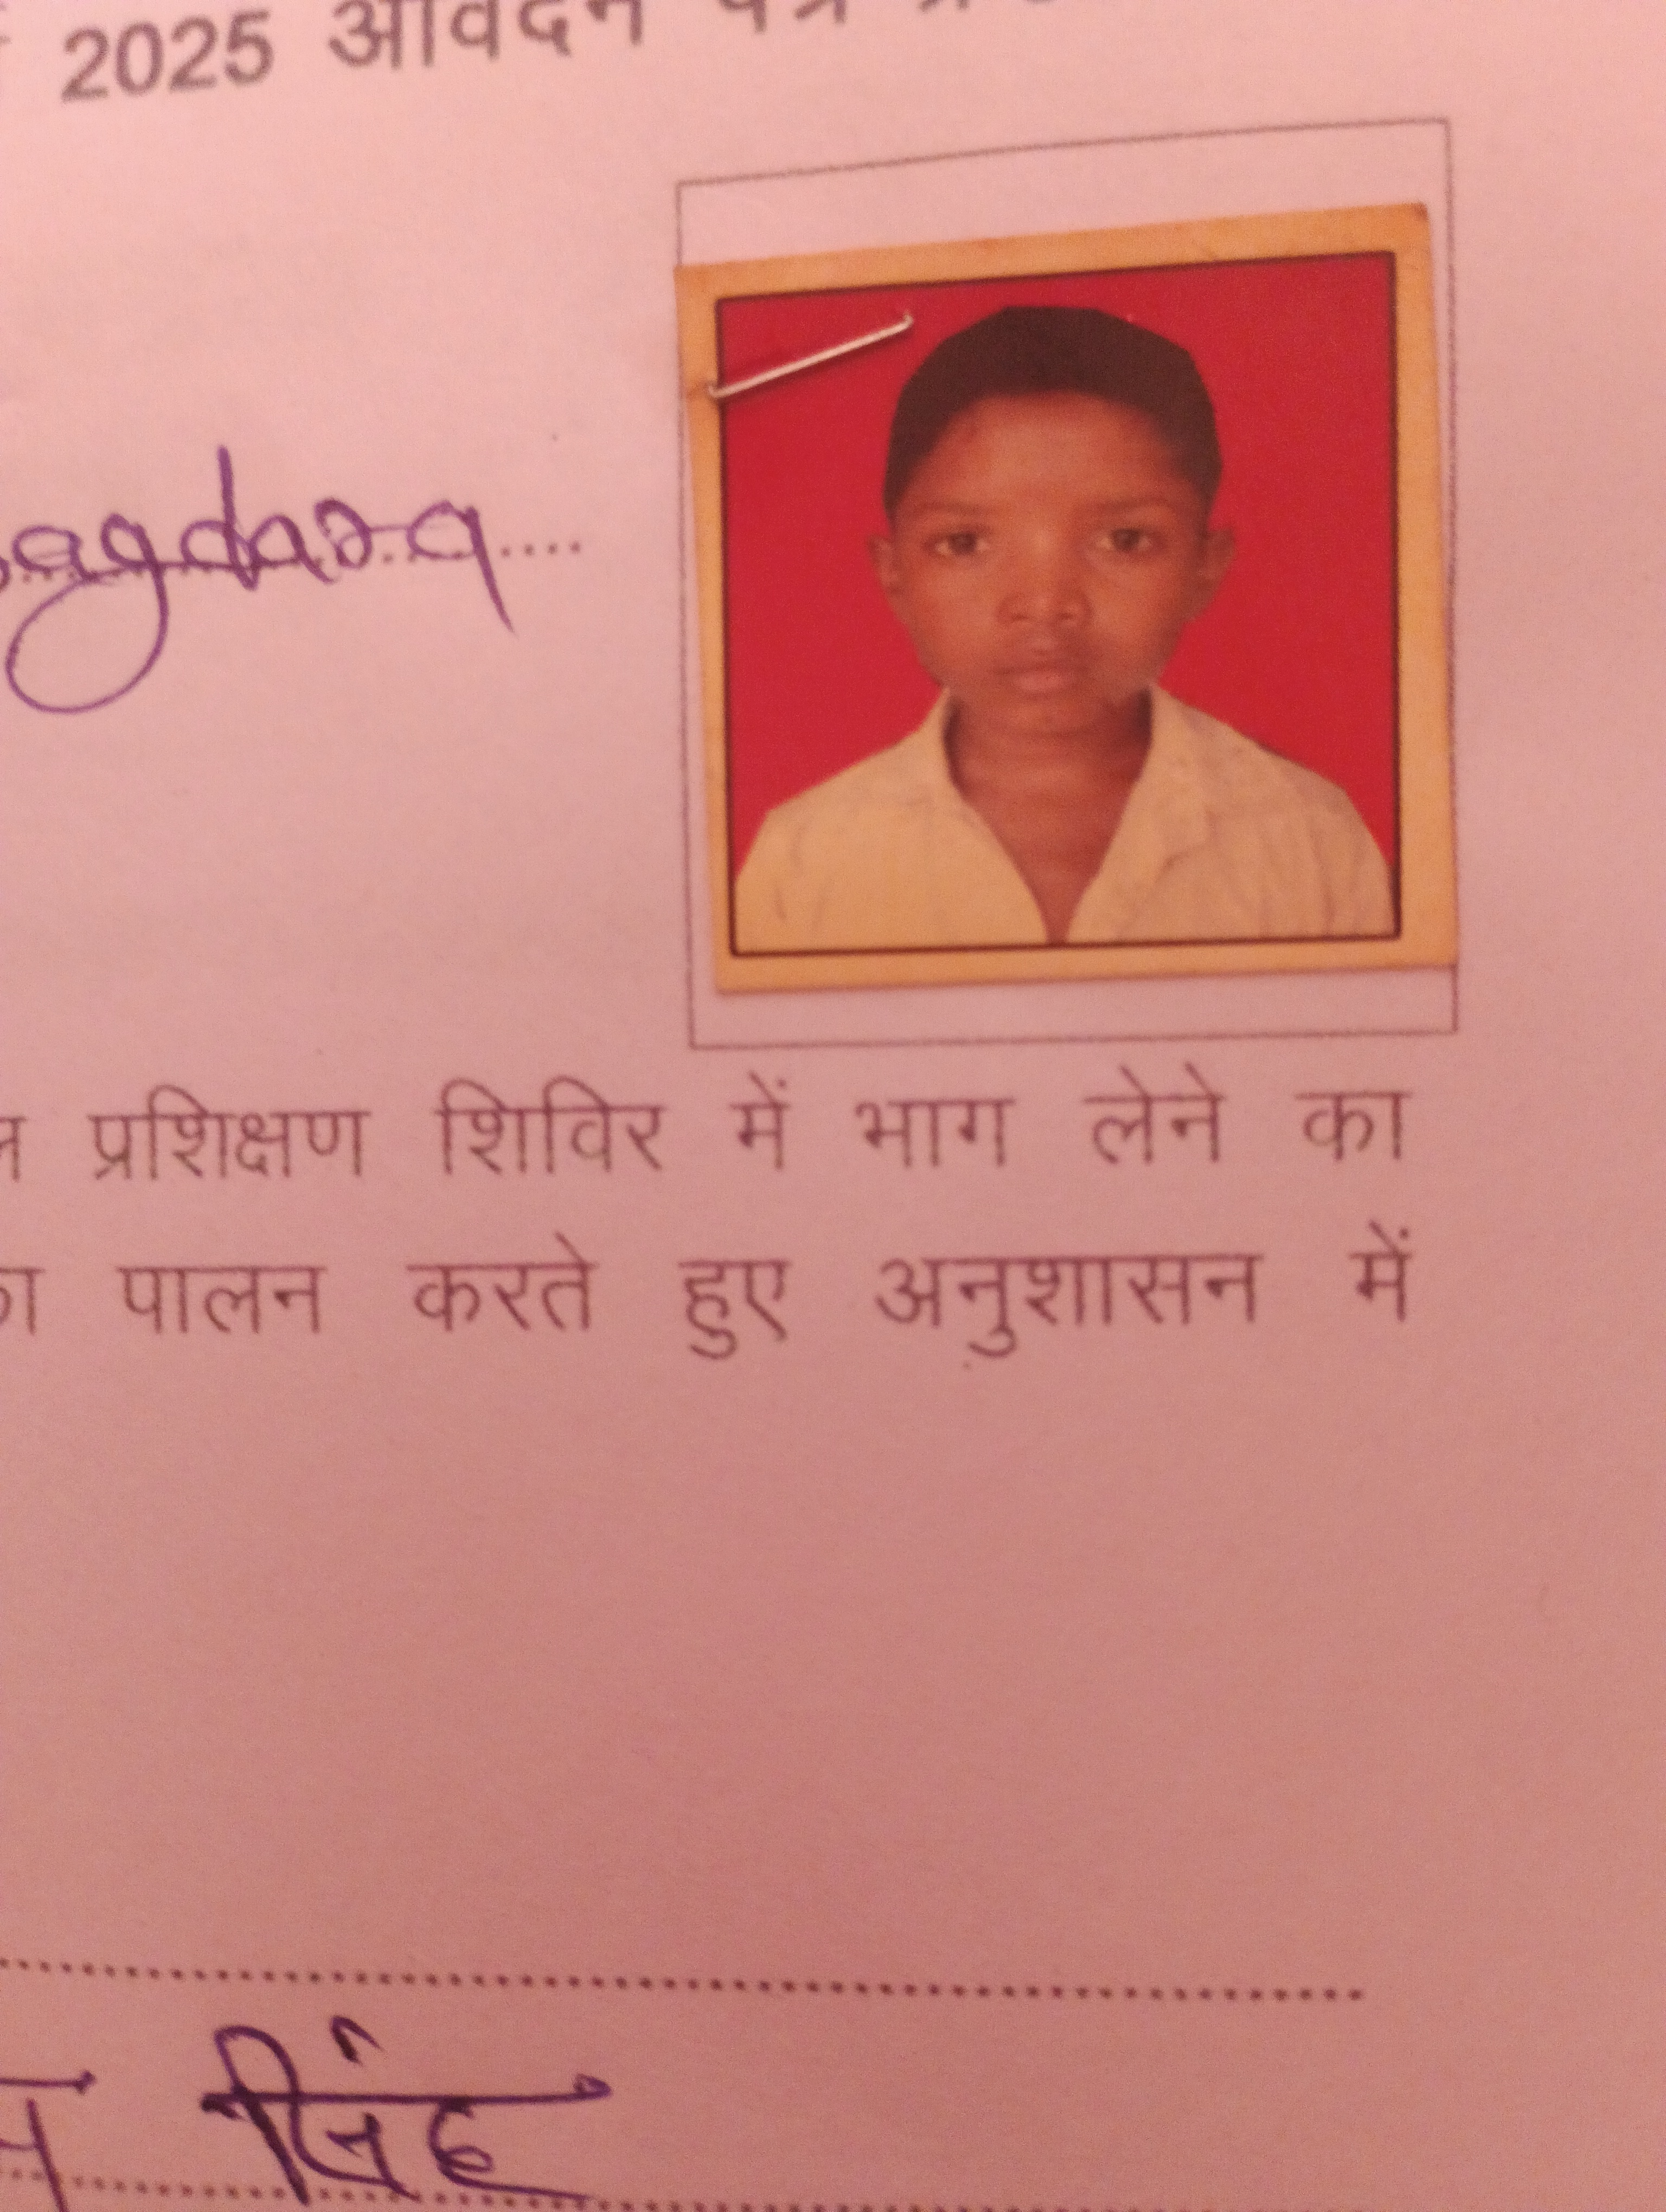 2025 आवेदन पत्र
agdara....
प्रशिक्षण शिविर में भाग लेने का
पालन करते हुए अनुशासन में
सिंह